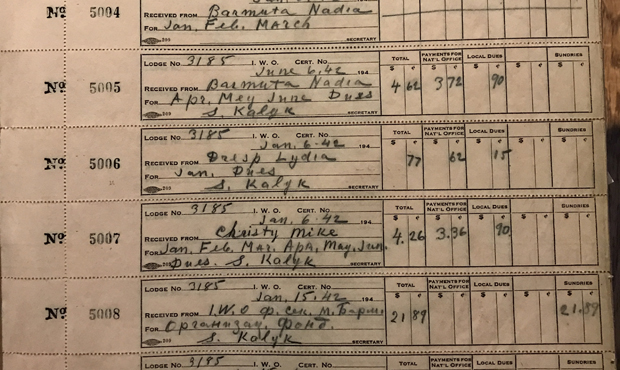 Nº 5004
RECEIVED FROM Barmuta Nadia
FOR Jan, Feb. March
293 SECRETARY
LODGE No. 3185 I. W. O. CERT. No.
TOTAL PAYMENTS FOR NAT'L OFFICE LOCAL DUES SUNDRIES
June 6, 42 194
$ ¢ $ ¢ $ ¢ $ ¢
Nº 5005
RECEIVED FROM Barmuta Nadia
4 62 3 72 90
FOR Apr, Mey, June Dues
293 S. Kalyk SECRETARY
LODGE No. 3185 I. W. O. CERT. No.
TOTAL PAYMENTS FOR NAT'L OFFICE LOCAL DUES SUNDRIES
Jan, 6-42 194
$ ¢ $ ¢ $ ¢ $ ¢
Nº 5006
RECEIVED FROM Dresp Lydia
77 62 15
FOR Jan, Dues
293 S. Kalyk SECRETARY
LODGE No. 3185 I. W. O. CERT. No.
TOTAL PAYMENTS FOR NAT'L OFFICE LOCAL DUES SUNDRIES
Jan, 6-42 194
$ ¢ $ ¢ $ ¢ $ ¢
Nº 5007
RECEIVED FROM Christy Mike
4.26 3.36 90
FOR Jan, Feb, Mar, Apr, May, Jun.
293 Dues. S. Kalyk SECRETARY
LODGE No. 3185 I. W. O. CERT. No.
TOTAL PAYMENTS FOR NAT'L OFFICE LOCAL DUES SUNDRIES
Jan, 15-42 194
$ ¢ $ ¢ $ ¢ $ ¢
Nº 5008
RECEIVED FROM I. W. O ф. сек. м.
21 89 21.89
FOR Организац. Фонд.
293 S. Kalyk SECRETARY
LODGE No. 3185 I. W. O. CERT. No.
TOTAL PAYMENTS FOR LOCAL DUES SUNDRIES